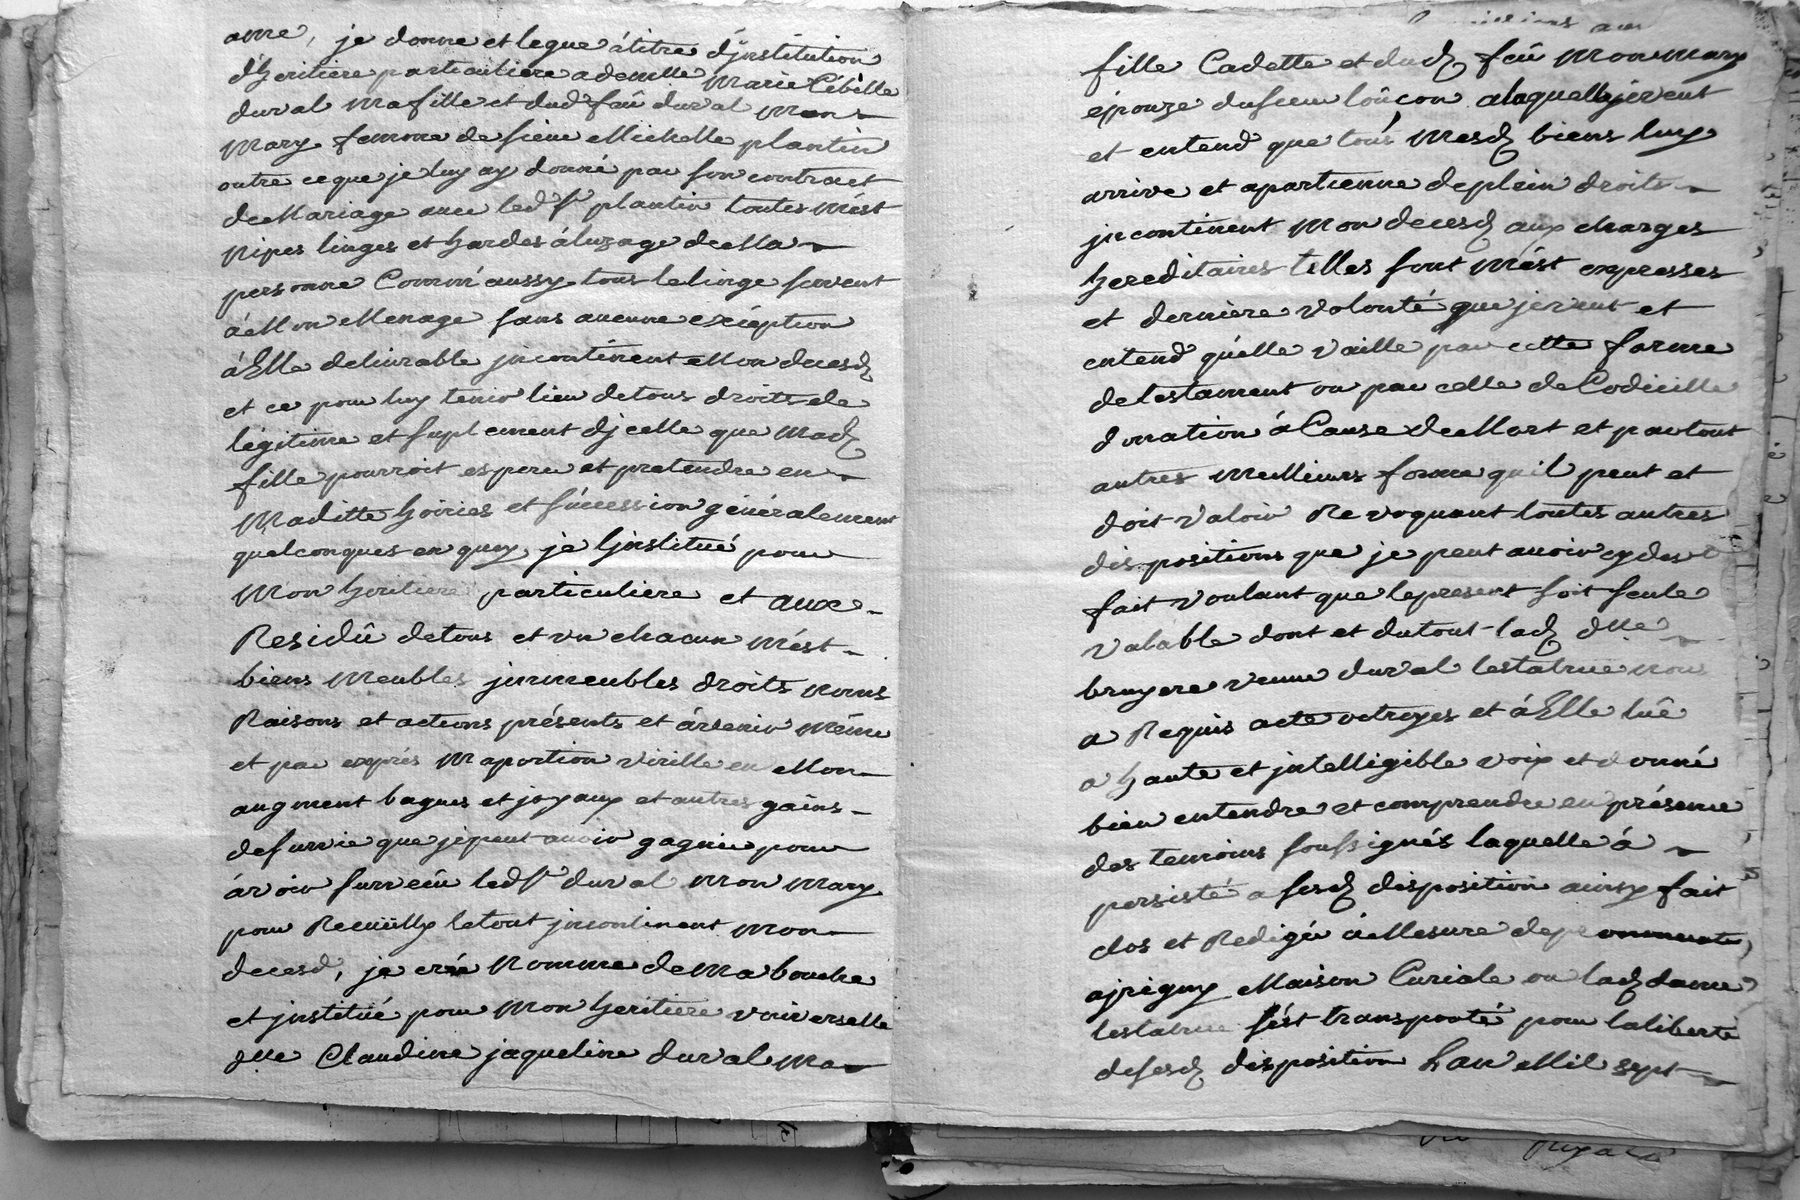 ame, je donne et legue á titre d'jnstitution
d'heritiere particuliere a demelle Marie Cébille
duval Ma fille et dud feû duval Mon
Mary femme de sieur Michelle plantin
outre ce que je luy ay donné par son contract
de Mariage avec led sr plantin toutes Mést
Nipes linges et hardes á luzage de Ma
personne Comm'aussy tous le linge servent
á Mon Menage sans aucune exception
á Elle delivrable jncontinent Mon decesd
et ce pour luy tenir lieu de tous droits de
légitime et suplement djcelle que Mad
fille pourroit esperer et pretendre en
Maditte hoiries et súccession généralement
quelconques en quoy je Ljnstitué pour
Mon heritiere particuliere et aux
Residû de tous et un chacun Mést
biens Meubles jmmeubles droits noms
Raisons et actions présents et ávenir Méme
et par exprés Ma portion virille en Mon
augment bagues et joyaux et autres gains
de survie que je peut avoir gagnée pour
ávoir survecu led sr duval Mon Mary
pour Recuëilly le tout jncontinent Mon
decesd, je crée Nomme de Ma bouche
et jnstitué pour Mon heritiere universelle
dlle Claudine jaqueline duval Ma
fille Cadette et dud feû Mon Mary
épouze du sieur loûçon a laquelle je veut
et entend que tous Mesd biens luy
arrive et apartienne de plein droits
jncontinent Mon decesd aux charges
hereditaires telles sont Mést expresses
et derniere volonté que je veut et
entend qu'elle vaille par cette forme
de testament ou par celle de Codicille
donation á Cause de Mort et par tout
autres Meillieurs forme qu'il peut et
doit valoir Revoquant toutes autres
dispositions que je peut avoir cy dest
fait voulant que le present soit seule
valable dont et du tout lad dlle
bruyere veuve duval testatrice nous
a Requis acte octroyes et á Elle lûe
a haute et jntelligible voix et donné
bien entendre et comprendre en présence
des temoins soussignés laquelle á
persisté a sesd disposition ainsy fait
clos et Redigé á Mesure de
a jrigny Maison Curiale ou lad dame
testatrice s'ést transporté pour la liberté
de sesd disposition Lan Mil sept